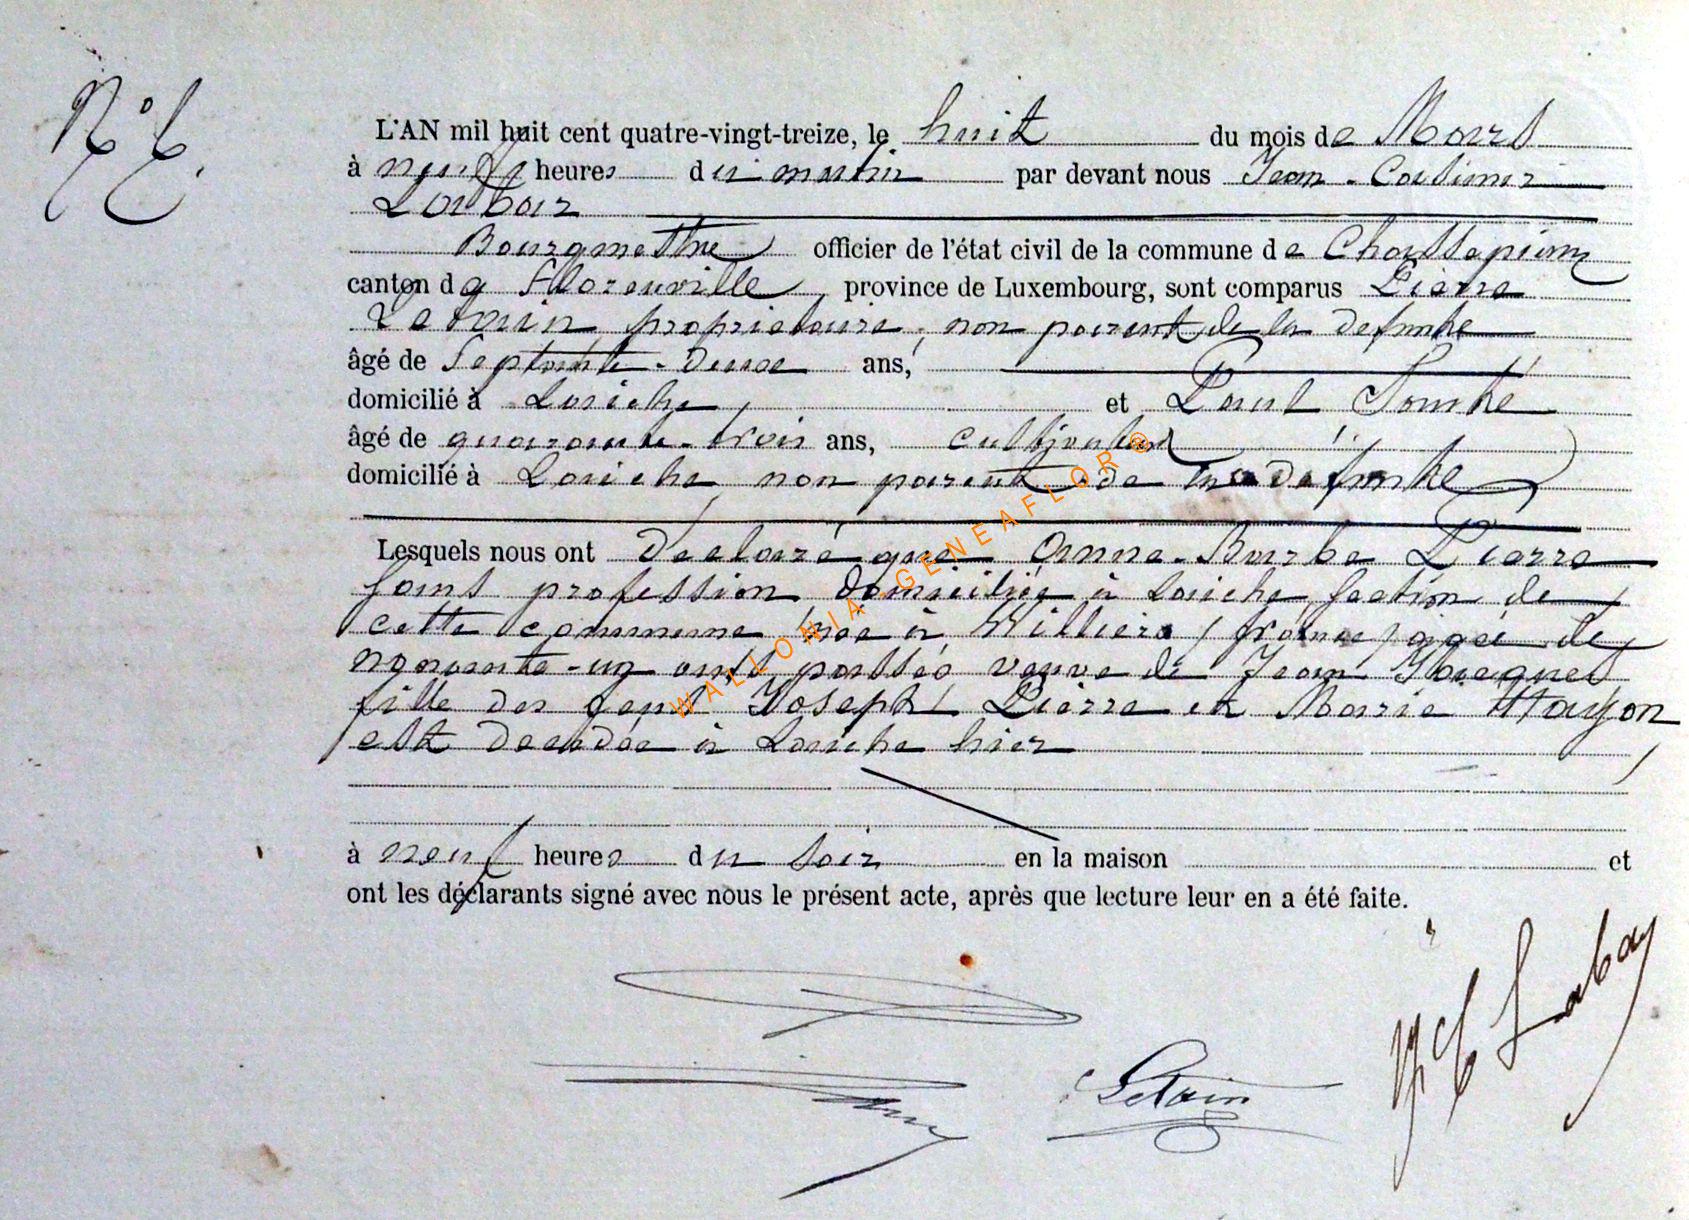 N° 6.
L'AN mil huit cent quatre-vingt-treize, le huit du mois de Mars
à neuf heures du matin par devant nous Jean-Casimir
Labbaz
Bourgmestre officier de l'état civil de la commune de Chassepierre
canton de Florenville province de Luxembourg, sont comparus Pierre
Letoin propriétaire, non parent de la défunte
âgé de Septante-deux ans,
domicilié à Laiche, et Paul
âgé de quarante-trois ans, cultivateur
domicilié à Laiche non parent de la défunte
Lesquels nous ont déclaré que Anne-Barbe Pierre
sans profession domiciliée à Laiche, section de
cette commune née à Williers (france) âgée de
nonante-un ans passés veuve de Jean Jacques
fille des feus Joseph Pierre et Marie Hayon
est décédée à Laiche hier
à neuf heures du soir en la maison et
ont les déclarants signé avec nous le présent acte, après que lecture leur en a été faite.
Letoin
WALLONIA-GENEAFLOR®